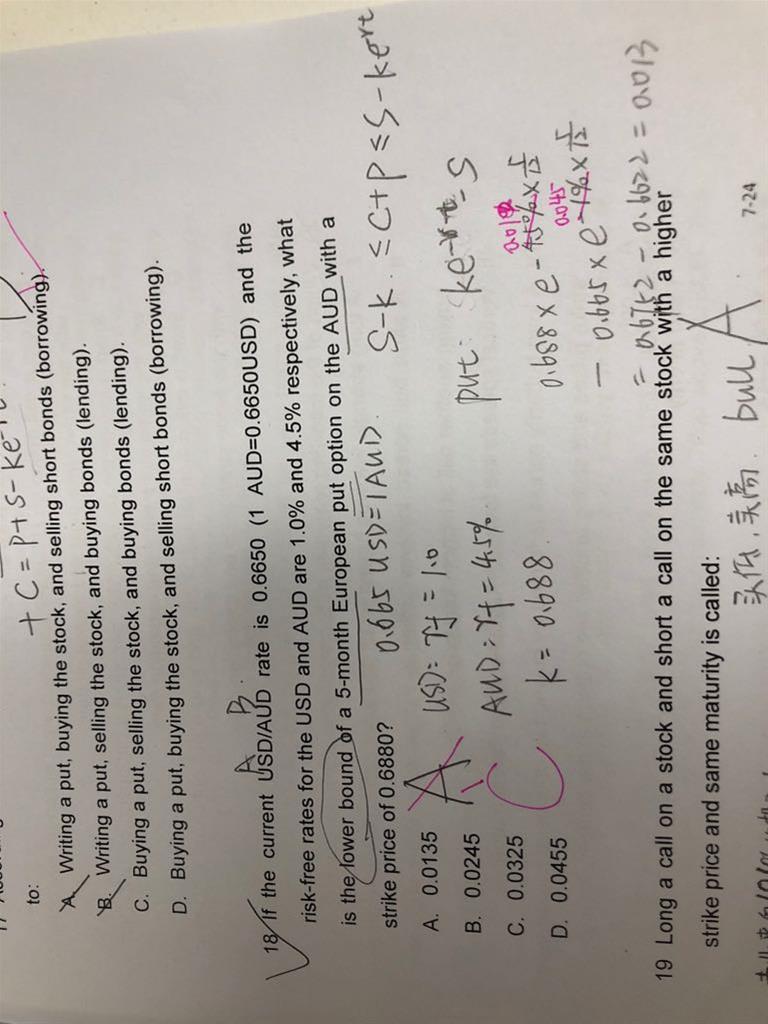 + C = P + S - Ke
to:
A. Writing a put, buying the stock, and selling short bonds (borrowing).
B. Writing a put, selling the stock, and buying bonds (lending).
C. Buying a put, selling the stock, and buying bonds (lending).
D. Buying a put, buying the stock, and selling short bonds (borrowing).
A B
18 If the current USD/AUD rate is 0.6650 (1 AUD=0.6650USD) and the
risk-free rates for the USD and AUD are 1.0% and 4.5% respectively, what
is the lower bound of a 5-month European put option on the AUD with a
strike price of 0.6880?
0.665 USD=1AUD.
S-K. ≤ C+P ≤ S-Ke^rt
A. 0.0135
B. 0.0245
C. 0.0325
D. 0.0455
A
C
USD: rf = 1.0
AUD: rf = 4.5%
K = 0.688
put: Ke^-rt - S
0.01
0.688 x e^-4.5% x 5/12
0.045
- 0.665 x e^-1% x 5/12
= 0.6752 - 0.6622 = 0.013
19 Long a call on a stock and short a call on the same stock with a higher
strike price and same maturity is called:
买低,卖高. bull A.
7-24